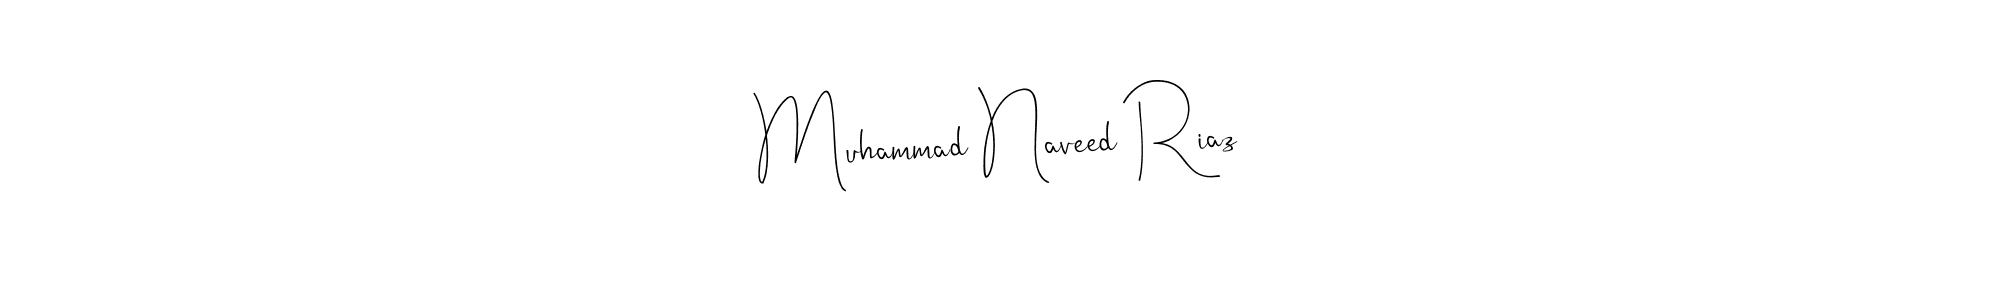 Muhammad Naveed Riaz